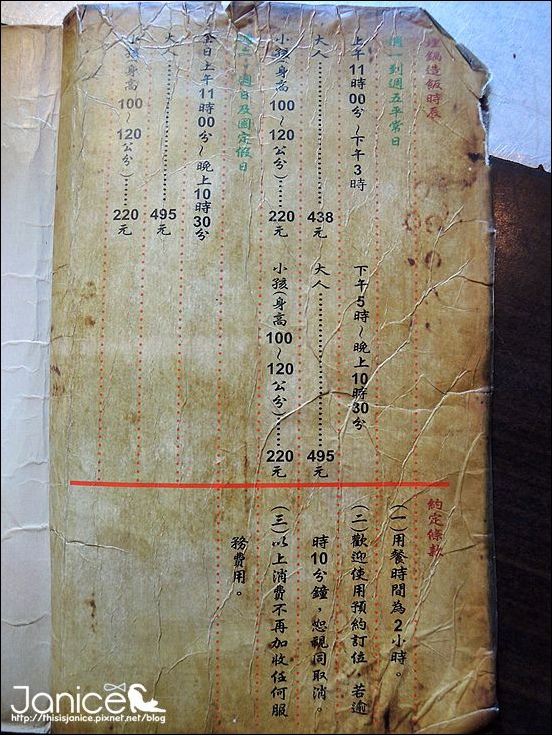 埋鍋造飯時辰
週一到週五平常日
上午11時00分~下午3時
大人..........438元
小孩(身高100~120公分)......220元
下午5時~晚上10時30分
大人..........495元
小孩(身高100~120公分)......220元
週日及國定假日
全日上午11時00分~晚上10時30分
大人..........495元
小孩(身高100~120公分)......220元
約定條款
(一)用餐時間為2小時。
(二)歡迎使用預約訂位,若逾
時10分鐘,恕視同取消。
(三)以上消費不再加收任何服
務費用。
Janice
http://thisisjanice.pixnet.net/blog